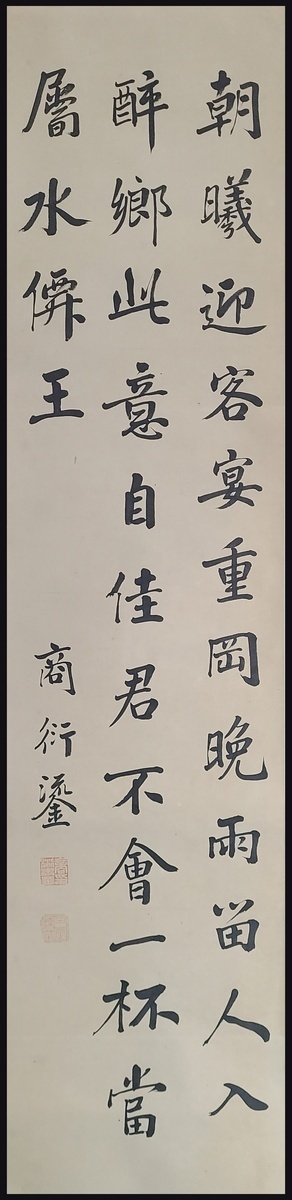 朝曦迎客宴重岡晚雨畱人入
醉鄉此意自佳君不會一杯當
屬水僊王
商衍鎏